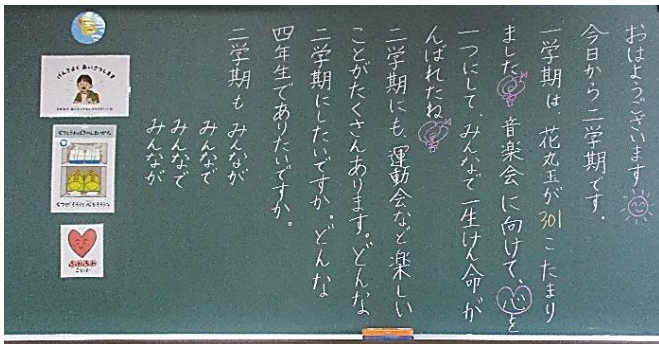 おはようございます
今日から二学期です。
一学期は、花丸玉が301こたまり
ました 音楽会に向けて、心を
一つにして、みんなで一生けん命が
んばれたね
二学期にも、運動会など楽しい
ことがたくさんあります。どんな
二学期にしたいですか。どんな
四年生でありたいですか。
二学期も みんなが
みんなで
みんなで
みんなが
げんきよく あいさつします
くつがそろうと心もそろう。
ふわふわ
ことば